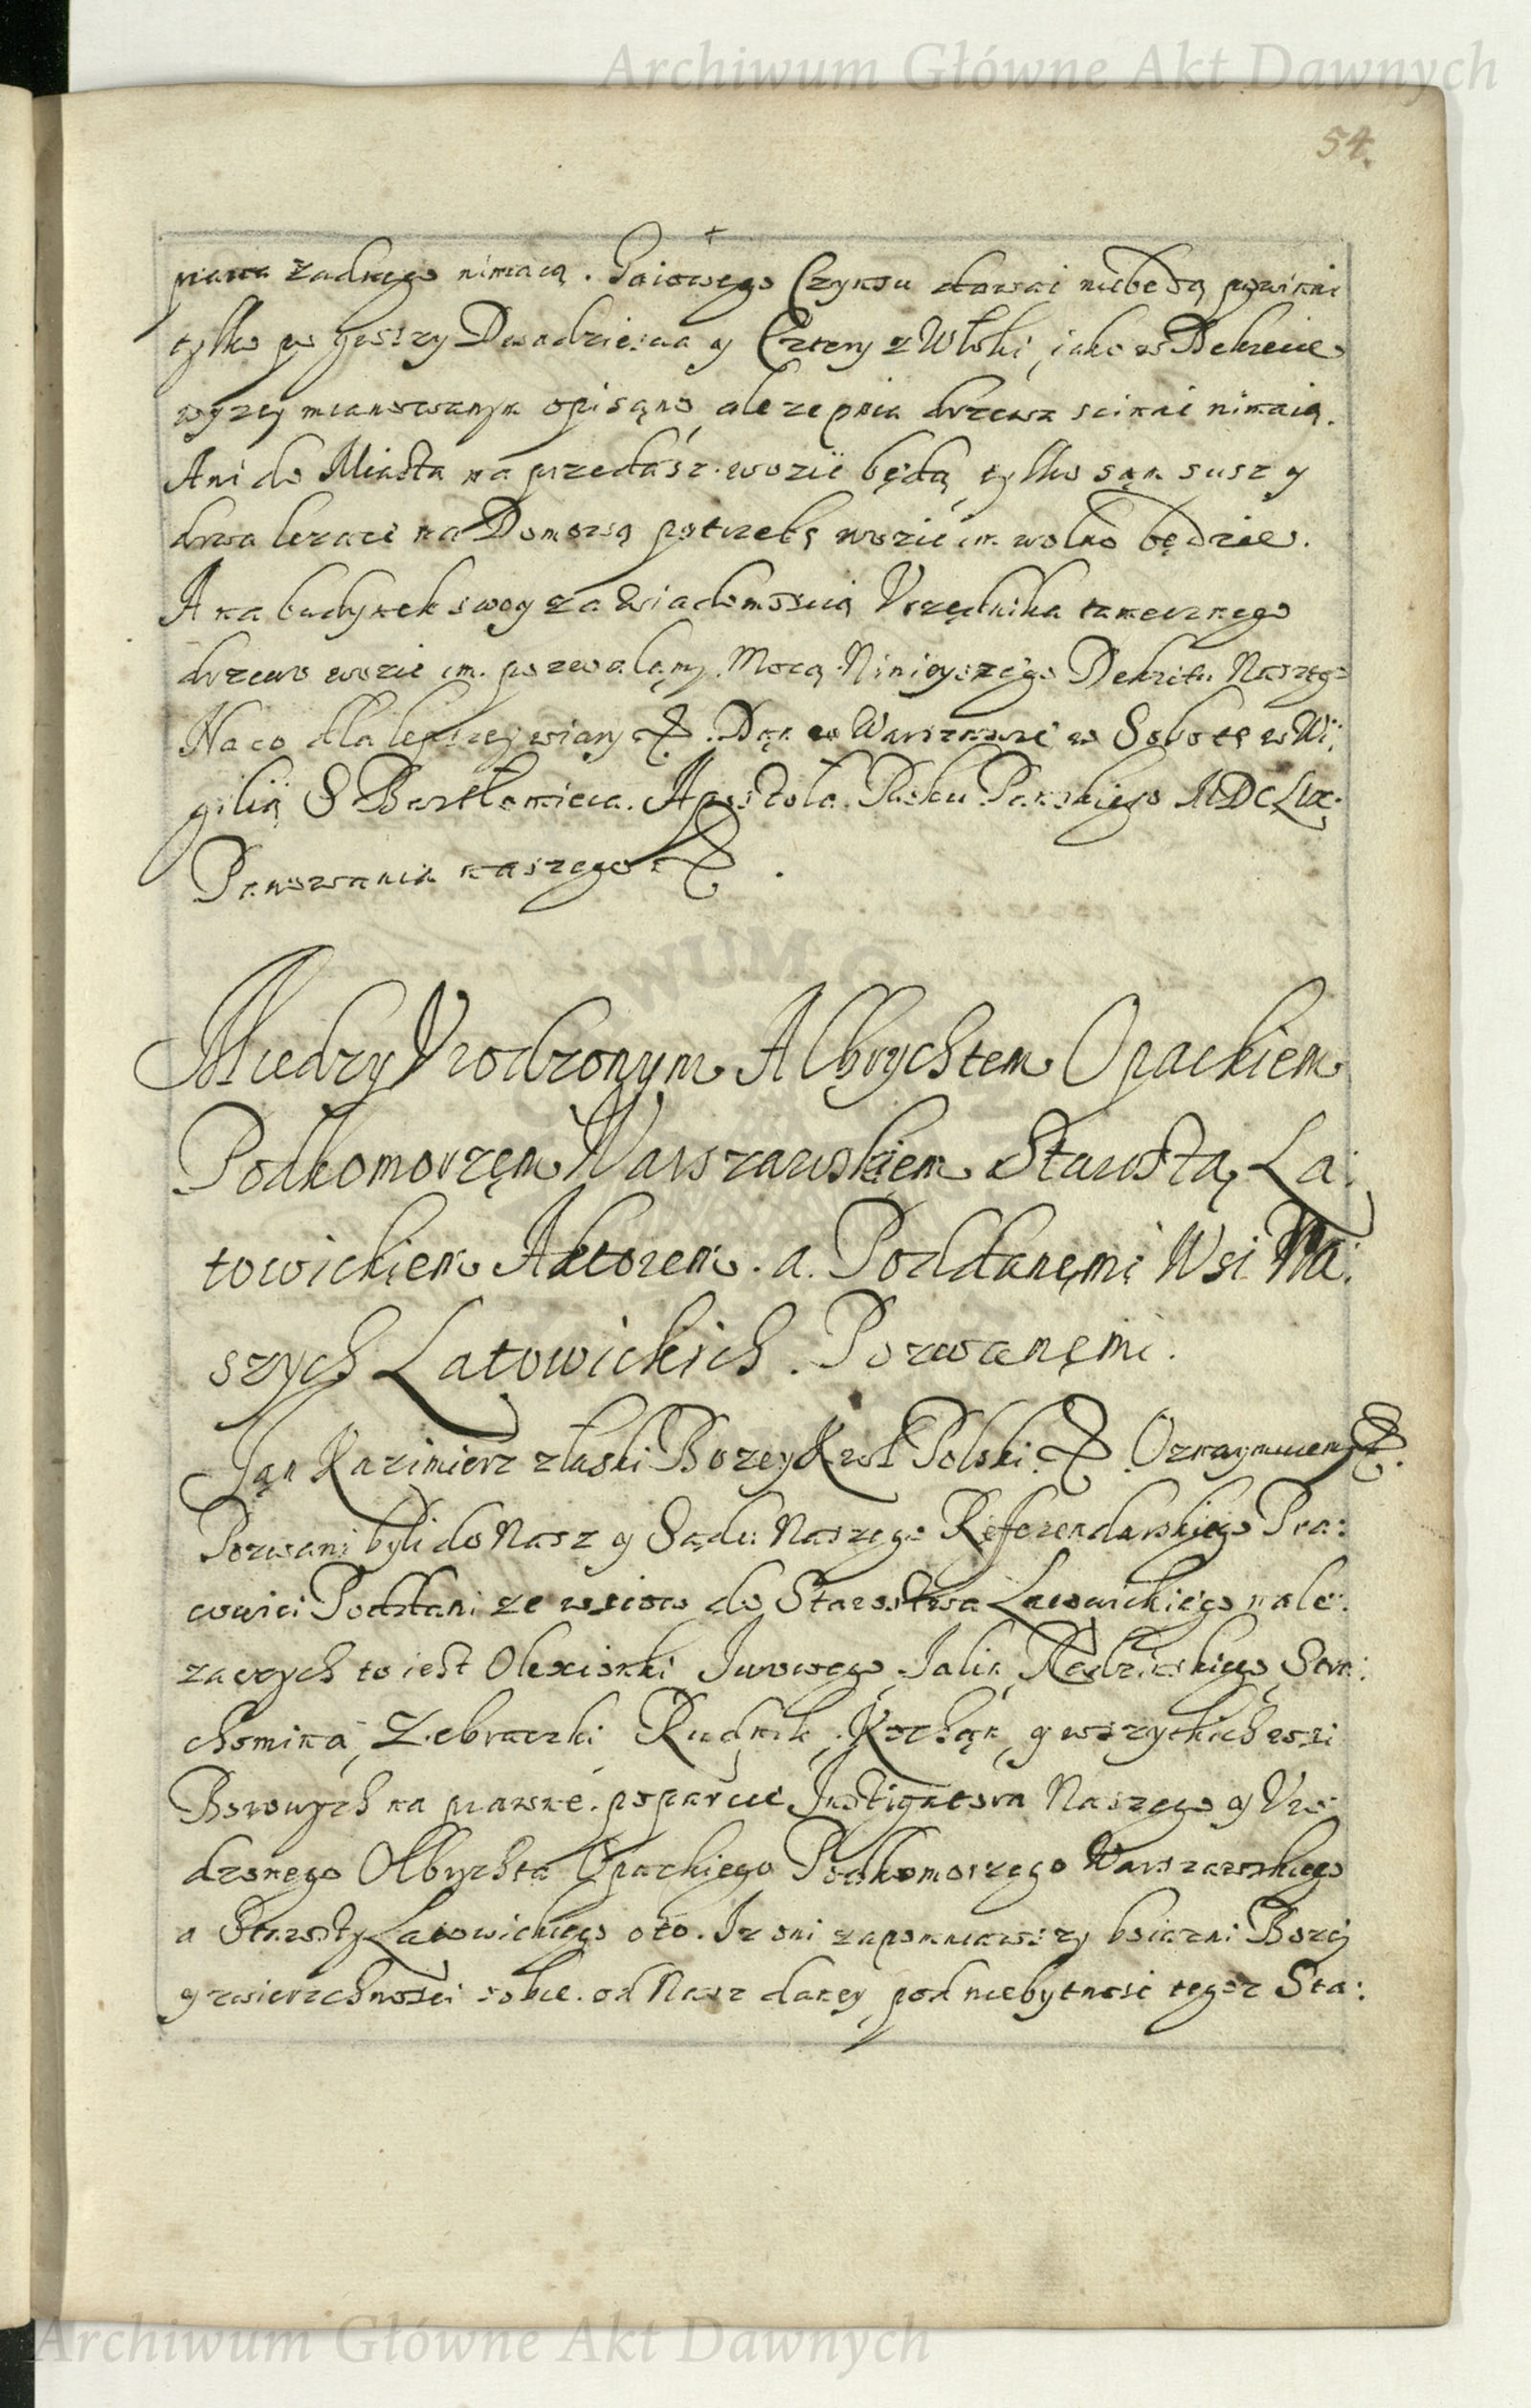 Archiwum Główne Akt Dawnych
54.
prawa zadnego nimaią. Gaiowego Czynszu dawać niebędą powinni
tylko po groszy Dwadziescia y Cztery z Włoki, iako w Dekrecie
wyzey mianowanym opisąno, ale ze pnia drzewa scinać nimaią.
Ani do Miasta na przedasz wozić będą, tylko sąm susz y
drwa lezące na Domową potrzebę wozić im wolno będzie.
A na budynek swoy za wiadomoscią Vrzędnika tamecznego
drzewo wozic im pozwalamy Mocą Ninieyszego Dekretu Naszego
Na co dla lepszey wiary &. Dąn w Warszawie w Sobotę w Wi:
gilią S Bartłomieia Apostoła Roku Pańskiego MDCLIX.
Panowania naszego &.
Miedzy Vrodzonym Albrychtem Opackiem
Podkomorzęm Warszawskięm Starostą La:
towickiem Aktorem. a. Poddanęmi Wsi Na:
szych Latowickich. Pozwanęmi.
Ján Kazimierz z łaski Bozey Krol Polski & Oznaymuiemy &.
Pozwani byli do Nasz y Sądu Naszego Referendarskiego Pra:
cowici Poddani ze wsiow do Starostwa Latowickiego nale:
zących to iest Olexianki Iarowego, Ialin, Stra:
chomina, Zebraczki, Rudnik, Kochąn, y wszytkich wsi
Borowych na prawne poparcie Instigatora Naszego y Vro:
dzonego Olbrychta Opackiego Podkomorzego Warszawskiego
a Starosty Latowickiego oto. Iz oni zapomniawszy boiazni Bozey
y zwierzchnosci sobie od Nasz daney, pod niebytnosc tegoz Sta:
Archiwum Główne Akt Dawnych